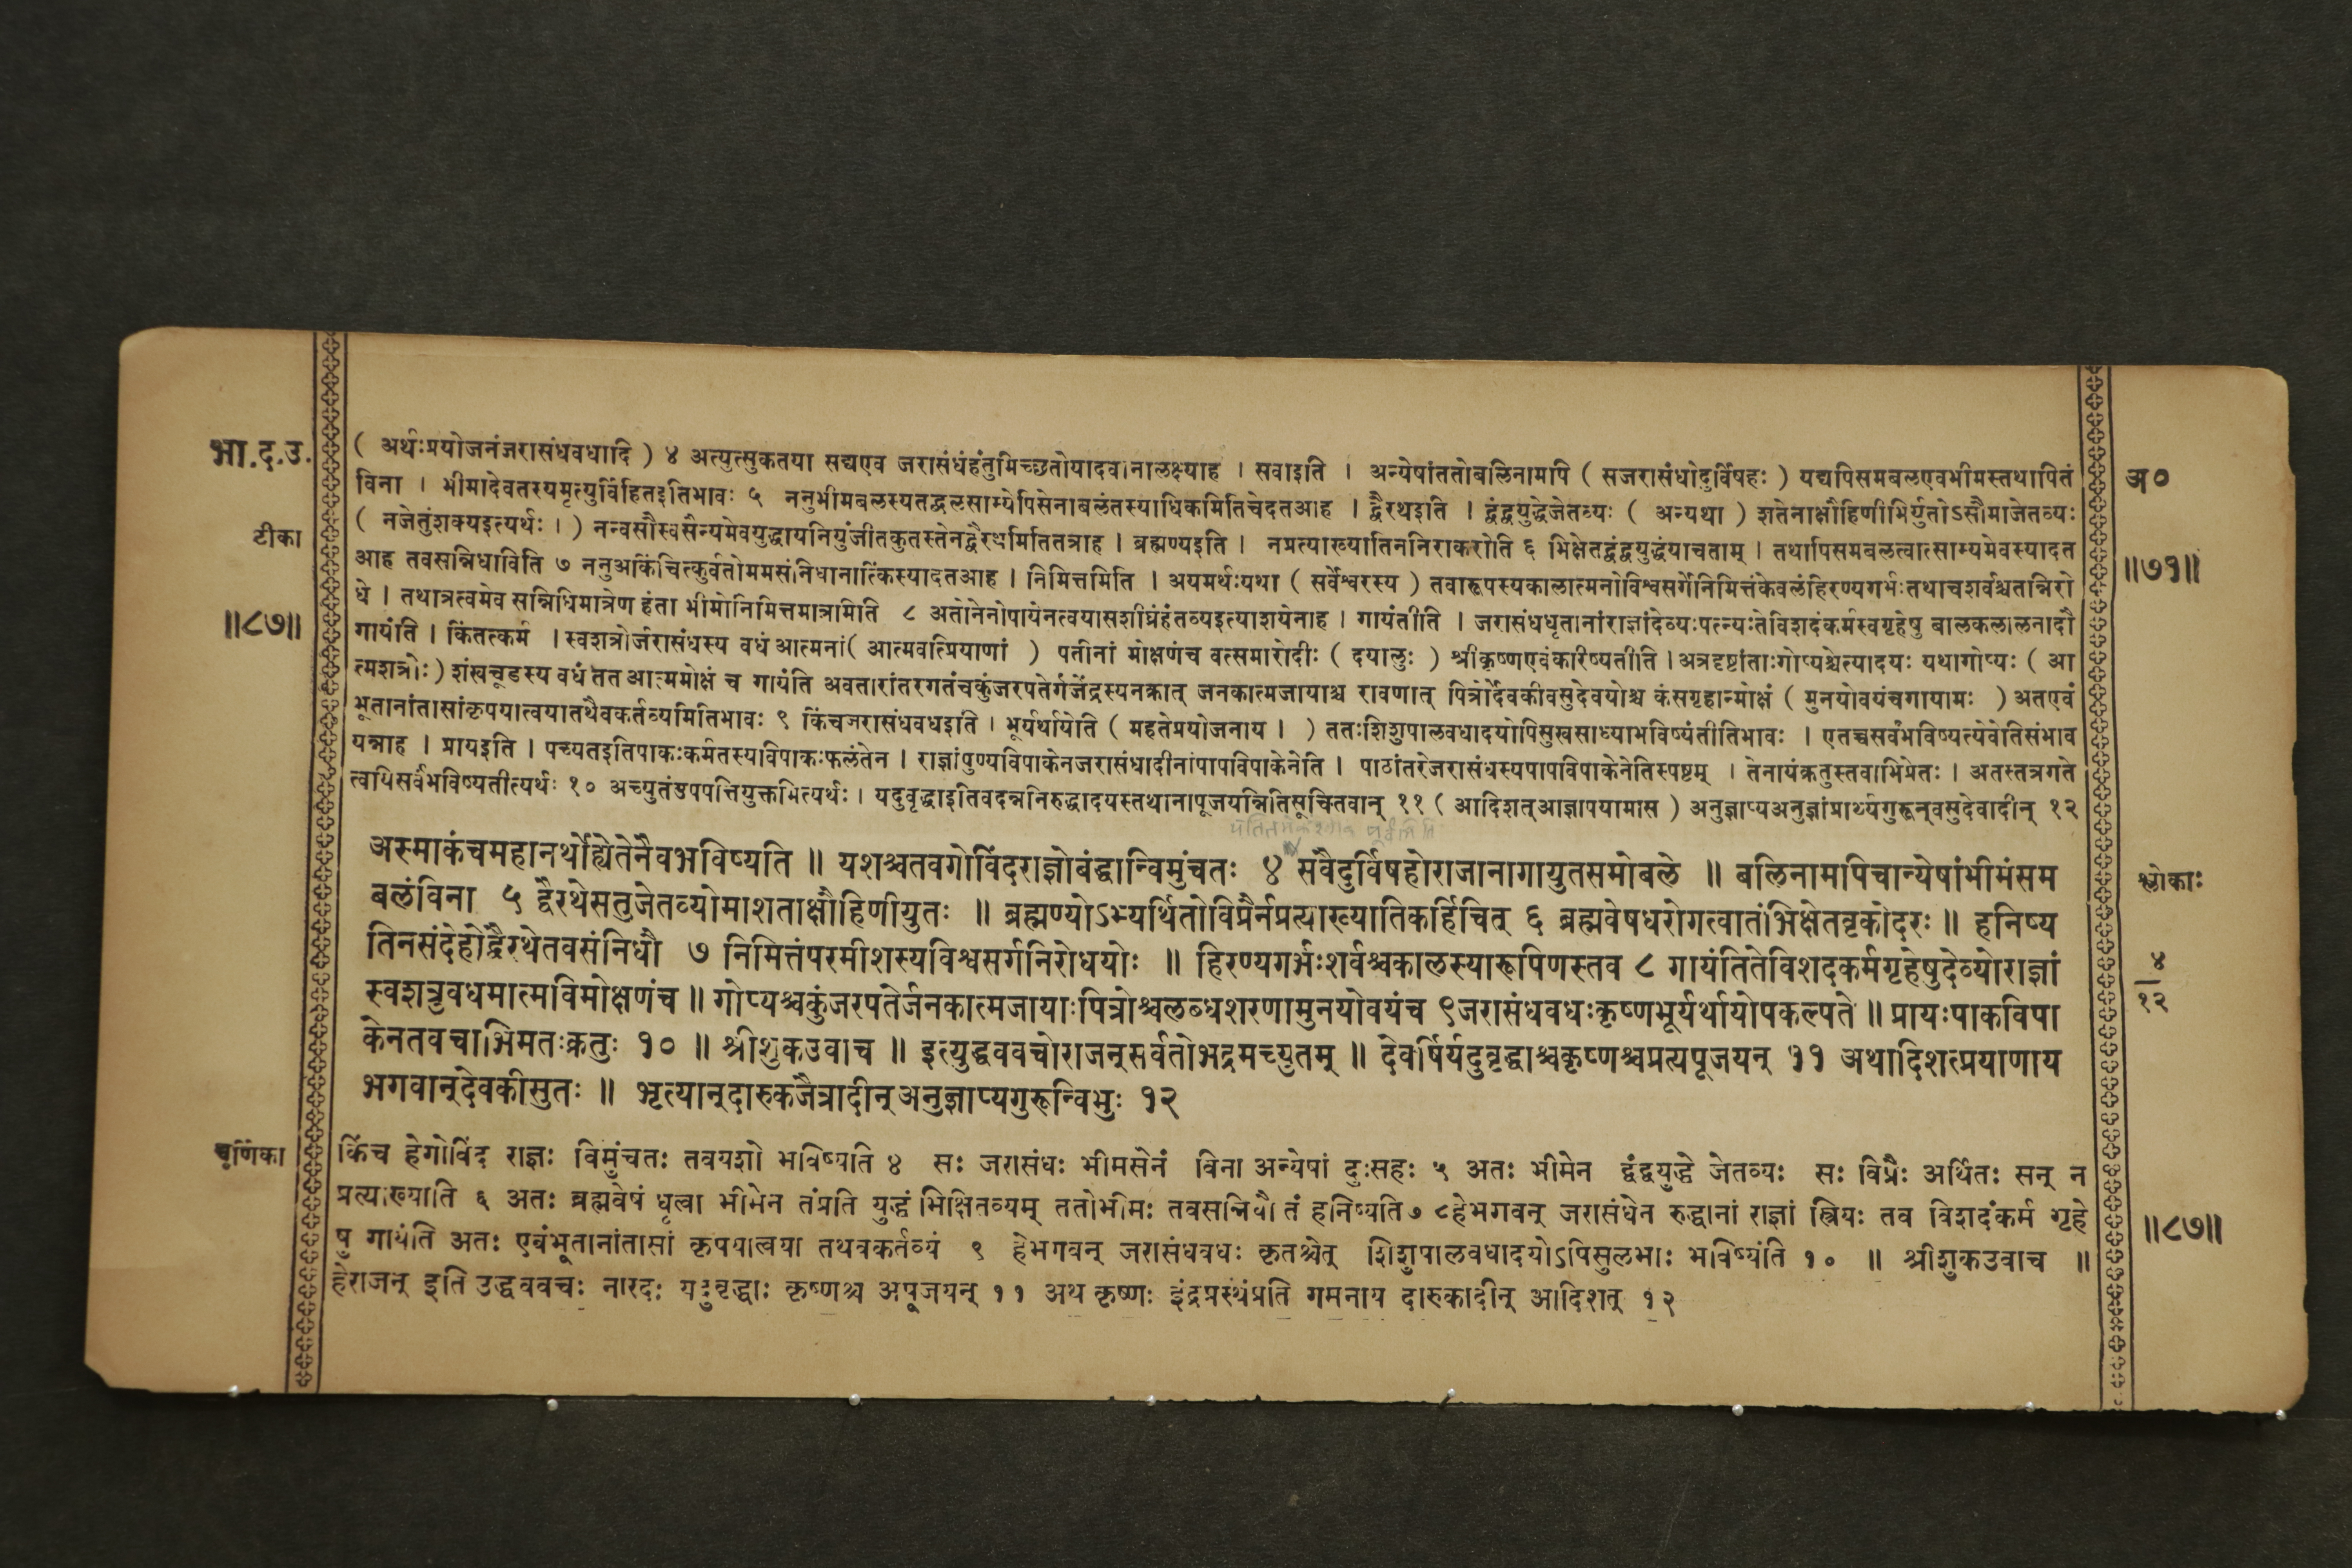 भा.द.उ.
टीका
॥८७॥
( अर्थःप्रयोजनंजरासंधवधादि ) ४ अत्युत्सुकतया सद्यएव जरासंधंहंतुमिच्छतोयादवानालक्ष्याह । सवाइति । अन्येषांततोबलिनामपि ( सजरासंधोदुर्विषहः ) यद्यपिसमबलएवभीमस्तथापितं
विना । भीमादेवतस्यमृत्युर्विहितइतिभावः ५ ननुभीमबलस्यतद्बलसाम्येपिसेनाबलंतस्याधिकमितिचेदतआह । द्वैरथइति । द्वंद्वयुद्धेजेतव्यः ( अन्यथा ) शतेनाक्षौहिणीभिर्युतोऽसौमाजेतव्यः
( नजेतुंशक्यइत्यर्थः । ) नन्वसौस्वसैन्यमेवयुद्धायनियुंजीतकुतस्तेनद्वैरथमितितत्राह । ब्रह्मण्यइति । नप्रत्याख्यातिननिराकरोति ६ भिक्षेतद्वंद्वयुद्धंयाचताम् । तथापिसमबलत्वात्साम्यमेवस्यादत
आह तवसन्निधाविति ७ ननुअकिंचित्कुर्वतोममसंनिधानात्किंस्यादतआह । निमित्तमिति । अयमर्थःयथा ( सर्वेश्वरस्य ) तवारूपस्यकालात्मनोविश्वसर्गेनिमित्तंकेवलंहिरण्यगर्भःतथाचशर्वश्चतन्निरो
धे । तथात्रत्वमेव सन्निधिमात्रेण हंता भीमोनिमित्तमात्रामिति ८ अतोनेनोपायेनत्वयासशीघ्रंहंतव्यइत्याशयेनाह । गायंतीति । जरासंधधृतानांराज्ञांदेव्यःपत्न्यःतेविशदंकर्मस्वगृहेषु बालकलालनादौ
गायंति । किंतत्कर्म । स्वशत्रोर्जरासंधस्य वधं आत्मनां( आत्मवत्प्रियाणां ) पतीनां मोक्षणंच वत्समारोदीः ( दयालुः ) श्रीकृष्णएवंकारिष्यतीति । अत्रदृष्टांताःगोप्यश्चेत्यादयः यथागोप्यः ( आ
त्मशत्रोः) शंखचूडस्य वधं तत आत्ममोक्षं च गायंति अवतारांतरगतंचकुंजरपतेर्गजेंद्रस्यनक्रात् जनकात्मजायाश्च रावणात् पित्रोर्देवकीवसुदेवयोश्च कंसगृहान्मोक्षं ( मुनयोवयंचगायामः ) अतएवं
भूतानांतासांकृपयात्वयातथैवकर्तव्यमितिभावः ९ किंचजरासंधवधइति । भूर्यर्थायेति ( महतेप्रयोजनाय । ) ततःशिशुपालवधादयोपिसुखसाध्याभविष्यंतीतिभावः । एतच्चसर्वंभविष्यत्येवेतिसंभाव
यन्नाह । प्रायइति । पच्यतइतिपाकःकर्मतस्यविपाकःफलंतेन । राज्ञांपुण्यविपाकेनजरासंधादीनांपापविपाकेनेति । पाठांतरेजरासंधस्यपापविपाकेनेतिस्पष्टम् । तेनायंक्रतुस्तवाभिप्रेतः । अतस्तत्रगते
त्वयिसर्वंभविष्यतीत्यर्थः १० अच्युतंउपपत्तियुक्तमित्यर्थः । यदुवृद्धाइतिवदन्ननिरुद्धादयस्तथानापूजयन्नितिसूचितवान् ११ ( आदिशत्आज्ञापयामास ) अनुज्ञाप्यअनुज्ञांप्रार्थ्यगुरून्वसुदेवादीन् १२
अस्माकंचमहानर्थोह्येतेनैवभविष्यति ॥ यशश्चतवगोविंदराज्ञोबंद्धान्विमुंचतः ४ सवैदुर्विषहोराजानागायुतसमोबले ॥ बलिनामपिचान्येषांभीमंसम
बलंविना ५ द्वैरथेसतुजेतव्योमाशताक्षौहिणीयुतः ॥ ब्रह्मण्योऽभ्यर्थितोविप्रैर्नप्रत्याख्यातिकर्हिचित् ६ ब्रह्मवेषधरोगत्वातंभिक्षेतवृकोदरः ॥ हनिष्य
तिनसंदेहोद्वैरथेतवसंनिधौ ७ निमित्तंपरमीशस्यविश्वसर्गनिरोधयोः ॥ हिरण्यगर्भःशर्वश्चकालस्यारूपिणस्तव ८ गायंतितेविशदकर्मगृहेषुदेव्योराज्ञां
स्वशत्रुवधमात्मविमोक्षणंच ॥ गोप्यश्चकुंजरपतेर्जनकात्मजायाःपित्रोश्चलब्धशरणामुनयोवयंच ९जरासंधवधःकृष्णभूर्यर्थायोपकल्पते ॥ प्रायःपाकविपा
केनतवचाभिमतःक्रतुः १० ॥ श्रीशुकउवाच ॥ इत्युद्धववचोराजन्सर्वतोभद्रमच्युतम् ॥ देवर्षिर्यदुवृद्धाश्चकृष्णश्चप्रत्यपूजयन् ११ अथादिशत्प्रयाणाय
भगवान्देवकीसुतः ॥ भृत्यान्दारुकजैत्रादीन् अनुज्ञाप्यगुरून्विभुः १२
चूर्णिका
किंच हेगोविंद राज्ञः विमुंचतः तवयशो भविष्यति ४ सः जरासंधः भीमसेनं विना अन्येषां दुःसहः ५ अतः भीमेन द्वंद्वयुद्धे जेतव्यः सः विप्रैः अर्थितः सन् न
प्रत्याख्याति ६ अतः ब्रह्मवेषं धृत्वा भीमेन तंप्रति युद्धं भिक्षितव्यम् ततोभीमः तवसन्निधौ तं हनिष्यति ७ ८हेभगवन् जरासंधेन रुद्धानां राज्ञां स्त्रियः तव विशदंकर्म गृहे
षु गायंति अतः एवंभूतानांतासां कृपयात्वया तथवकर्तव्यं ९ हेभगवन् जरासंधवधः कृतश्चेत् शिशुपालवधादयोऽपिसुलभाः भविष्यंति १० ॥ श्रीशुकउवाच ॥
हेराजन् इति उद्धववचः नारदः यदुवृद्धाः कृष्णश्च अपूजयन् ११ अथ कृष्णः इंद्रप्रस्थंप्रति गमनाय दारुकादीन् आदिशत् १२
अ०
॥७१॥
श्लोकाः
४
१२
॥८७॥